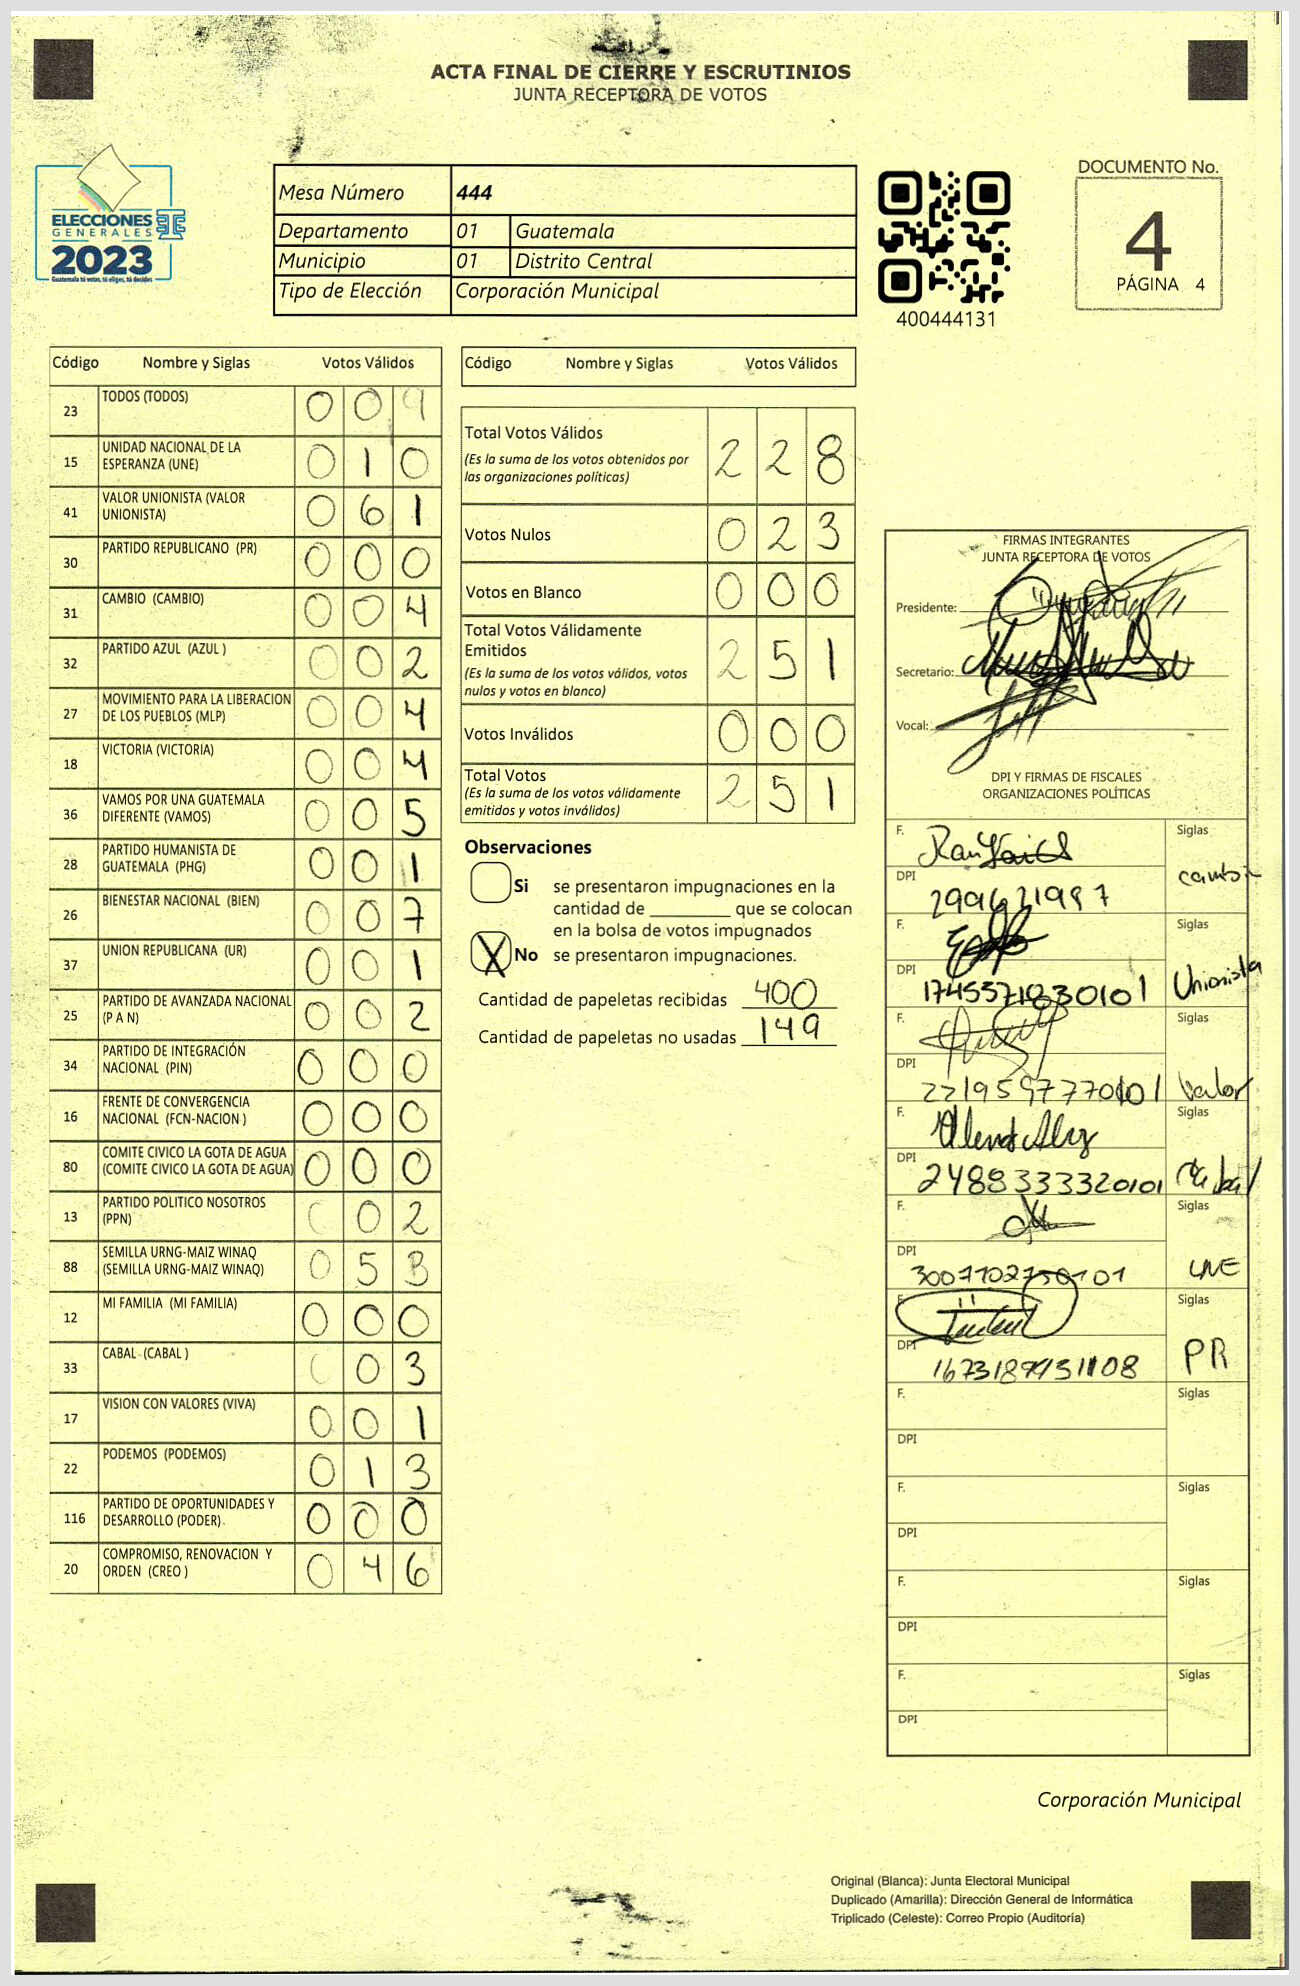 ACTA FINAL DE CIERRE Y ESCRUTINIOS
JUNTA RECEPTORA DE VOTOS
ELECCIONES
GENERALES
2023
Guatemala tú votas, tú eliges, tú decides
Mesa Número 444
Departamento 01 Guatemala
Municipio 01 Distrito Central
Tipo de Elección Corporación Municipal
400444131
DOCUMENTO No.
4
PÁGINA 4
Código Nombre y Siglas Votos Válidos
23 TODOS (TODOS) 0 0 9
15 UNIDAD NACIONAL DE LA ESPERANZA (UNE) 0 1 0
41 VALOR UNIONISTA (VALOR UNIONISTA) 0 6 1
30 PARTIDO REPUBLICANO (PR) 0 0 0
31 CAMBIO (CAMBIO) 0 0 4
32 PARTIDO AZUL (AZUL ) 0 0 2
27 MOVIMIENTO PARA LA LIBERACION DE LOS PUEBLOS (MLP) 0 0 4
18 VICTORIA (VICTORIA) 0 0 4
36 VAMOS POR UNA GUATEMALA DIFERENTE (VAMOS) 0 0 5
28 PARTIDO HUMANISTA DE GUATEMALA (PHG) 0 0 1
26 BIENESTAR NACIONAL (BIEN) 0 0 7
37 UNION REPUBLICANA (UR) 0 0 1
25 PARTIDO DE AVANZADA NACIONAL (P A N) 0 0 2
34 PARTIDO DE INTEGRACIÓN NACIONAL (PIN) 0 0 0
16 FRENTE DE CONVERGENCIA NACIONAL (FCN-NACION ) 0 0 0
80 COMITE CIVICO LA GOTA DE AGUA (COMITE CIVICO LA GOTA DE AGUA) 0 0 0
13 PARTIDO POLITICO NOSOTROS (PPN) 0 0 2
88 SEMILLA URNG-MAIZ WINAQ (SEMILLA URNG-MAIZ WINAQ) 0 5 3
12 MI FAMILIA (MI FAMILIA) 0 0 0
33 CABAL (CABAL ) 0 0 3
17 VISION CON VALORES (VIVA) 0 0 1
22 PODEMOS (PODEMOS) 0 1 3
116 PARTIDO DE OPORTUNIDADES Y DESARROLLO (PODER) 0 0 0
20 COMPROMISO, RENOVACION Y ORDEN (CREO ) 0 4 6
Código Nombre y Siglas Votos Válidos
Total Votos Válidos 2 2 8
(Es la suma de los votos obtenidos por
las organizaciones políticas)
Votos Nulos 0 2 3
Votos en Blanco 0 0 0
Total Votos Válidamente
Emitidos 2 5 1
(Es la suma de los votos válidos, votos
nulos y votos en blanco)
Votos Inválidos 0 0 0
Total Votos 2 5 1
(Es la suma de los votos válidamente
emitidos y votos inválidos)
Observaciones
Si se presentaron impugnaciones en la
cantidad de ________ que se colocan
en la bolsa de votos impugnados
X No se presentaron impugnaciones.
Cantidad de papeletas recibidas 400
Cantidad de papeletas no usadas 149
FIRMAS INTEGRANTES
JUNTA RECEPTORA DE VOTOS
Presidente:
Secretario:
Vocal:
DPI Y FIRMAS DE FISCALES
ORGANIZACIONES POLÍTICAS
F. Siglas
DPI
F. Siglas
DPI Unionista
F. Siglas
DPI 2219597770101 Valor
F. Siglas
DPI 2488333320101
F. Siglas
DPI UNE
F. Siglas
DPI PR
F. Siglas
DPI
F. Siglas
DPI
F. Siglas
DPI
F. Siglas
DPI
Corporación Municipal
Original (Blanca): Junta Electoral Municipal
Duplicado (Amarilla): Dirección General de Informática
Triplicado (Celeste): Correo Propio (Auditoría)